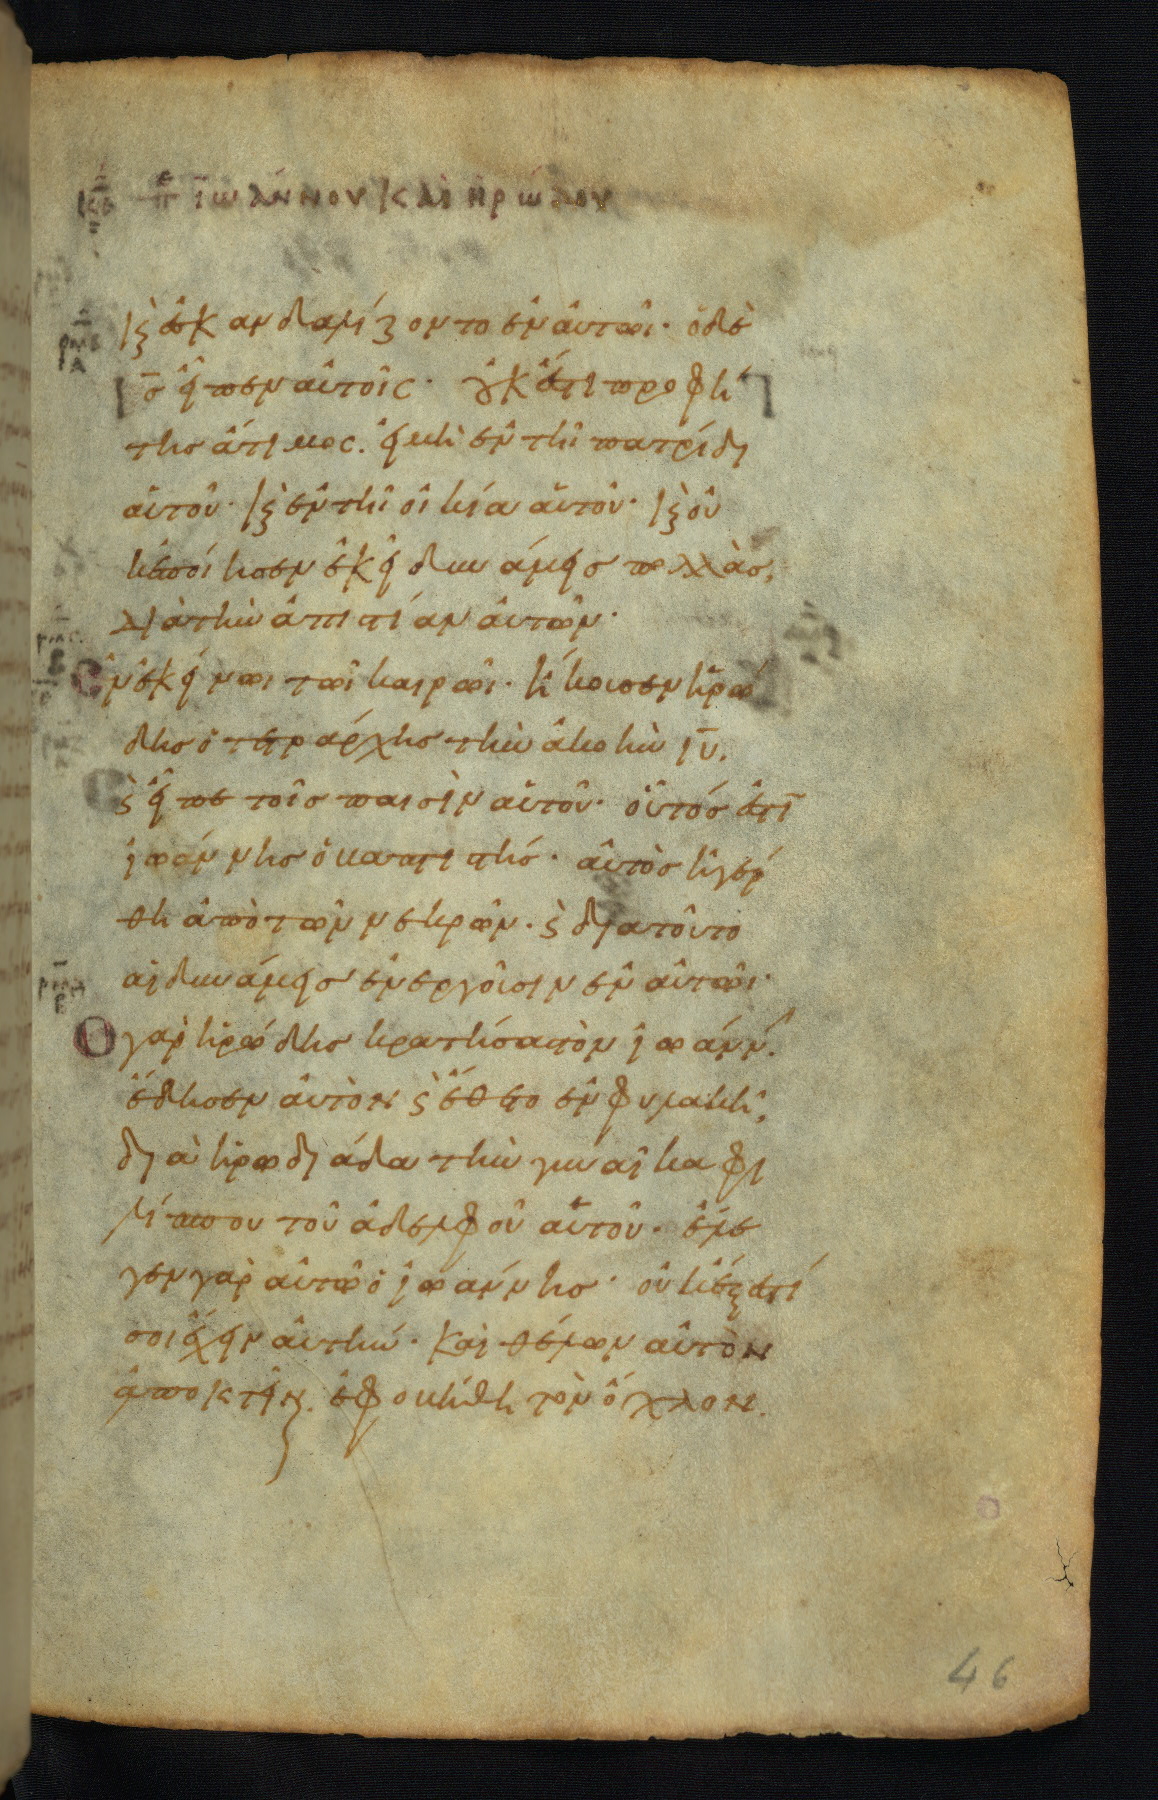 κε π̅ε̅ ἰωάννου καὶ ἡρώδου
κ(αὶ) ἐσκανδαλίζοντο ἐν αὐτῶι· ὁ δὲ
ι̅ς̅ εἶπεν αὐτοῖς· οὐκ ἔστι προφή
της ἄτιμος. εἰ μὴ ἐν τῆ πατρίδι
αὐτοῦ· κ(αὶ) ἐν τῆ οἰκία αὐτοῦ· κ(αὶ) οὐ
κ ἐποίησεν ἐκεῖ δυνάμεις πολλὰς,
διὰ τὴν ἀπιστίαν αὐτῶν·
Ἐν ἐκείνωι τῶι καιρῶι· ἤκουσεν ἡρώ
δης ὁ τετράρχης τὴν ἀκοὴν ι̅υ̅.
κ(αὶ) εἶπε τοῖς παισὶν αὐτοῦ· οὗτός ἐστι
ἰωάννης ὁ βαπτιστής· αὐτὸς ἠγέρ
θη ἀπὸ τῶν νεκρῶν· κ(αὶ) διατοῦτο
αἱ δυνάμεις ἐνεργοῦσιν ἐν αὐτῶι·
Ὁ γὰρ ἡρώδης κρατήσας τὸν ἰωάνν(ην)
ἔδησεν αὐτὸν κ(αὶ) ἔθετο ἐν φυλακῆ,
διὰ ἡρωδιάδα τὴν γυναῖκα φι
λίππου τοῦ ἀδελφοῦ αὐτοῦ· ἔλε
γεν γὰρ αὐτῶ ὁ ἰωάννης· οὐκ ἔξεστί
σοι ἔχειν αὐτήν· καὶ θέλων αὐτὸν
ἀποκτεῖν(αι). ἐφοβήθη τὸν ὄχλον.
46